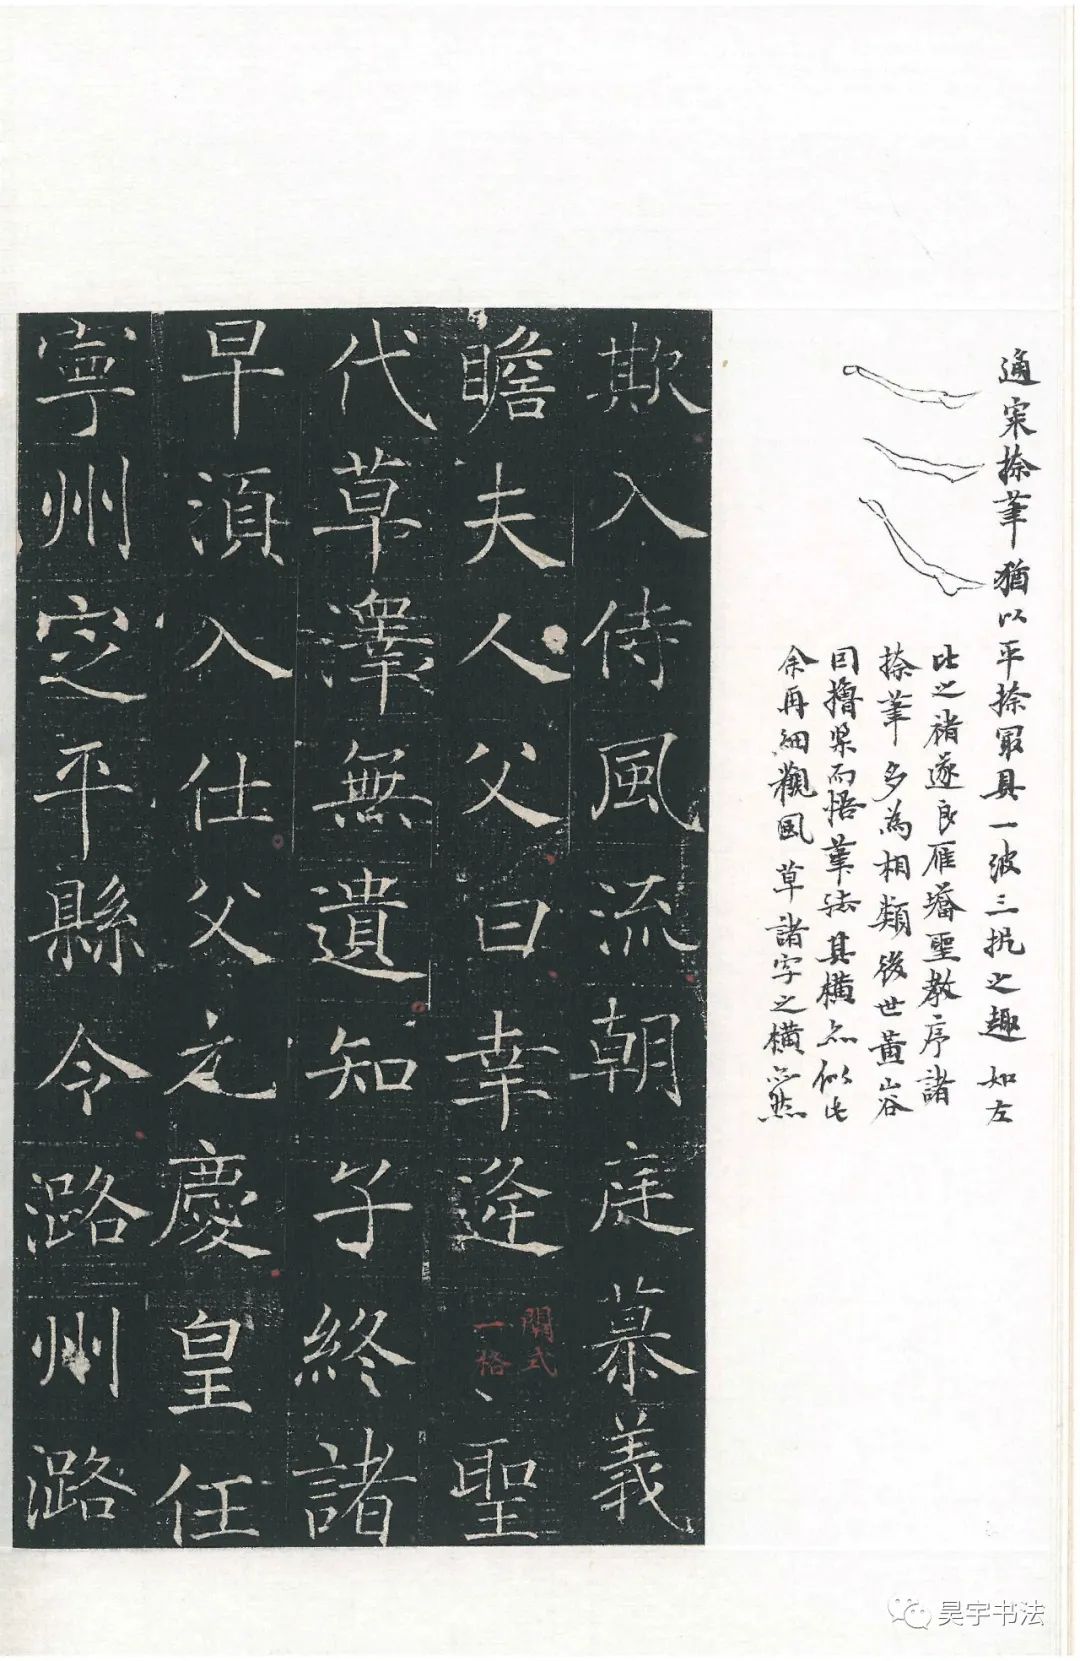 通寀捺筆猶以平捺冣具一波三扺之趣 如左
比之褚遂良雁塔聖教序諸
捺筆多為相類後世黃山谷
因擼槳而悟筆法其橫亦似此
余再細觀風草諸字之橫亦然
欺入侍風流朝庭慕義
瞻夫人父曰幸逢聖
隔式
一格
代草澤無遺知子終諸
早湏入仕父之慶皇任
寧州定平縣令潞州潞
昊宇书法